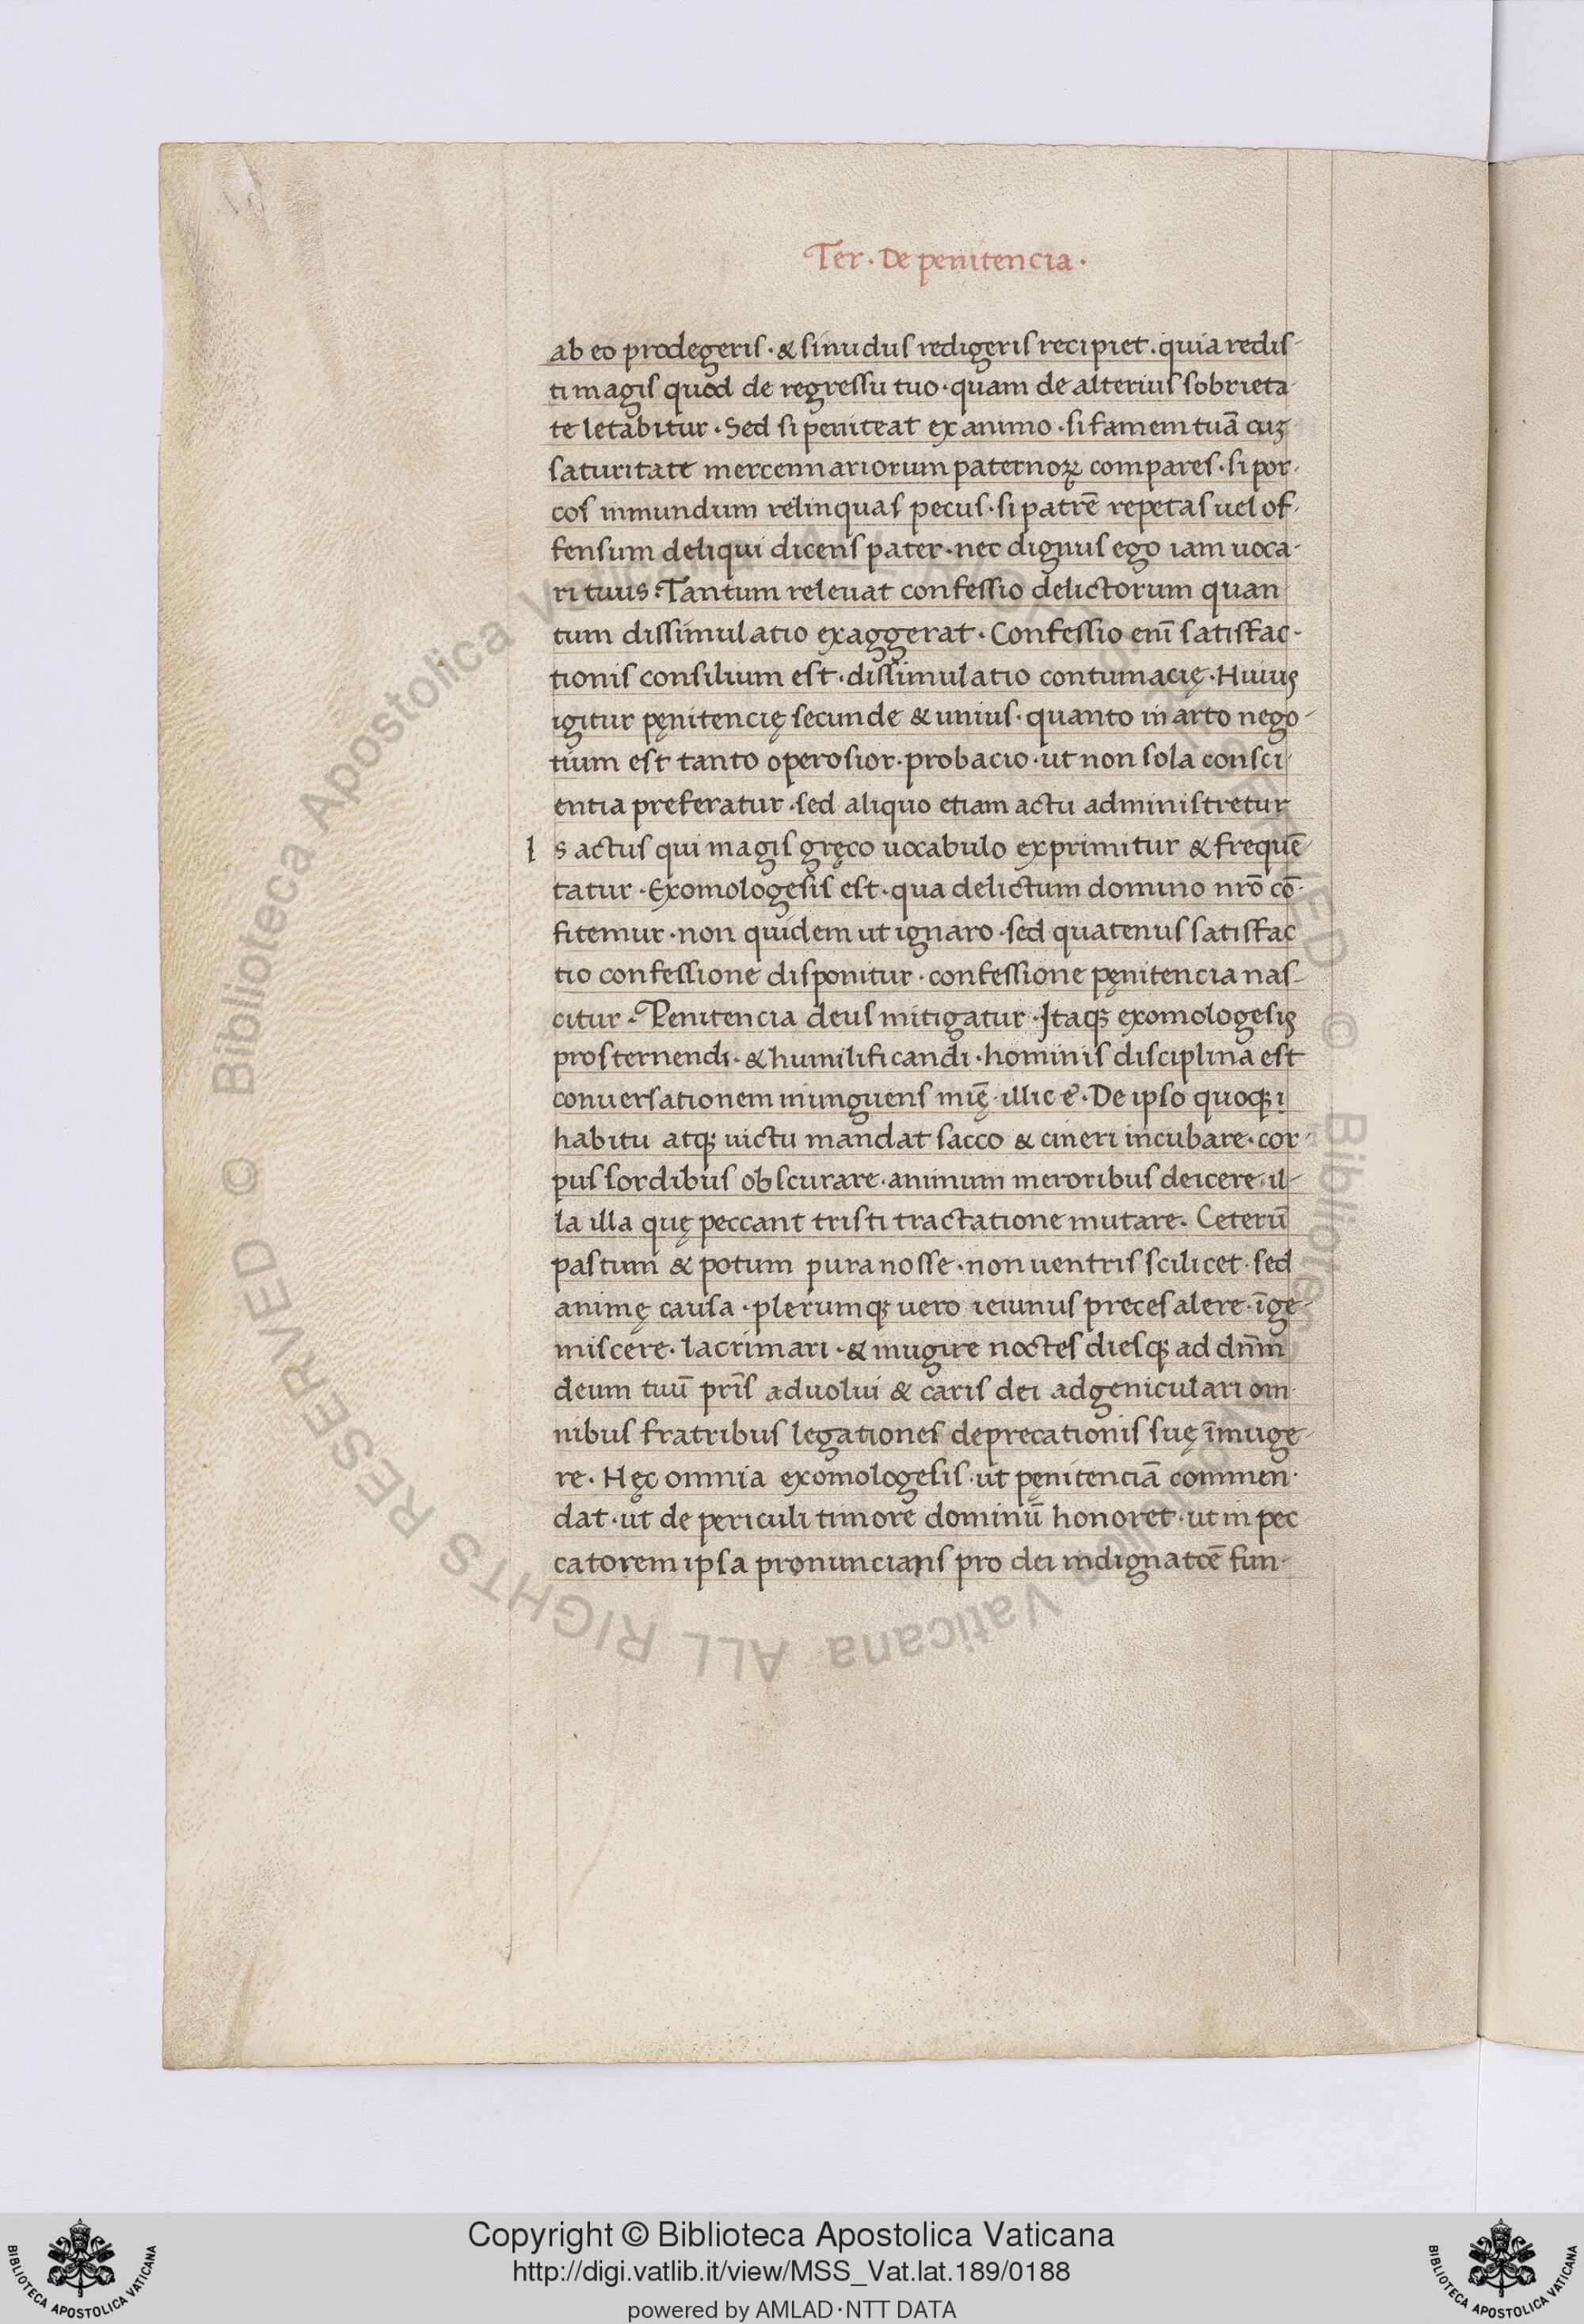 Ter · De penitencia ·
ab eo prodegeris · & si nudus redigeris recipiet · quia redis-
ti magis quod de regressu tuo · quam de alterius sobrieta-
te letabitur · Sed si peniteat ex animo · si famem tuā cuꝫ
saturitate mercennariorum paternoꝝ compares · si por-
cos inmundum relinquas pecus · si patrē repetas uel of-
fensum deliqui dicens pater · nec dignus ego iam uoca-
ri tuus : Tantum releuat confessio delictorum quan-
tum dissimulatio exaggerat · Confessio enī satisfac-
tionis consilium est · dissimulatio contumacię · Huius
igitur pęnitencię secunde & unius · quanto in arto nego-
tium est tanto operosior · probacio · ut non sola consci-
entia preferatur · sed aliquo etiam actu administretur
I s actus qui magis gręco uocabulo exprimitur & frequē-
tatur · Exomologesis est · qua delictum domino nrō cō-
fitemur · non quidem ut ignaro · sed quatenus satisfac
tio confessione disponitur · confessione pęnitencia nas-
citur · Penitencia deus mitigatur · Itaqꝫ exomologesis
prosternendi · & humilificandi · hominis disciplina est
conuersationem iniunguens mię · illic ē · De ipso quoqꝫ i
habitu atqꝫ uictu mandat sacco & cineri incubare · cor-
pus sordibus obscurare · animum meroribus deicere · il-
la illa quę peccant tristi tractatione mutare · Ceterū
pastum & potum pura nosse · non uentris scilicet · sed
animę causa · plerumqꝫ uero ieiunus preces alere · īge-
miscere · lacrimari · & mugire noctes diesqꝫ ad dn̄m
deum tuū prīs aduolui & caris dei adgeniculari om-
nibus fratribus legationes deprecationis suę īmuge-
re · Hęc omnia exomologesis · ut pęnitenciā commen-
dat · ut de periculi timore dominū honoret · ut in pec
catorem ipsa pronuncians pro dei indignatōe fun-
© Biblioteca Apostolica Vaticana ALL RIGHTS RESERVED © Biblioteca Apostolica Vaticana ALL RIGHTS RESERVED
Copyright © Biblioteca Apostolica Vaticana
http://digi.vatlib.it/view/MSS_Vat.lat.189/0188
powered by AMLAD·NTT DATA
BIBLIOTECA APOSTOLICA VATICANA
BIBLIOTECA APOSTOLICA VATICANA